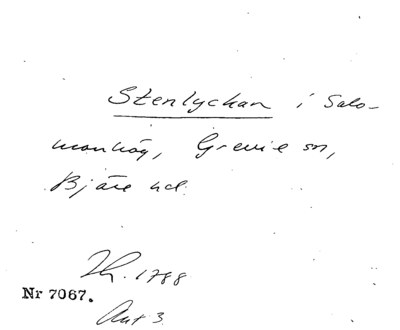 Stenlyckan i Salo-
monhög, Grevie sn,
Bjäre hd.
Lh. 1788
Nr 7067.
Akt 3